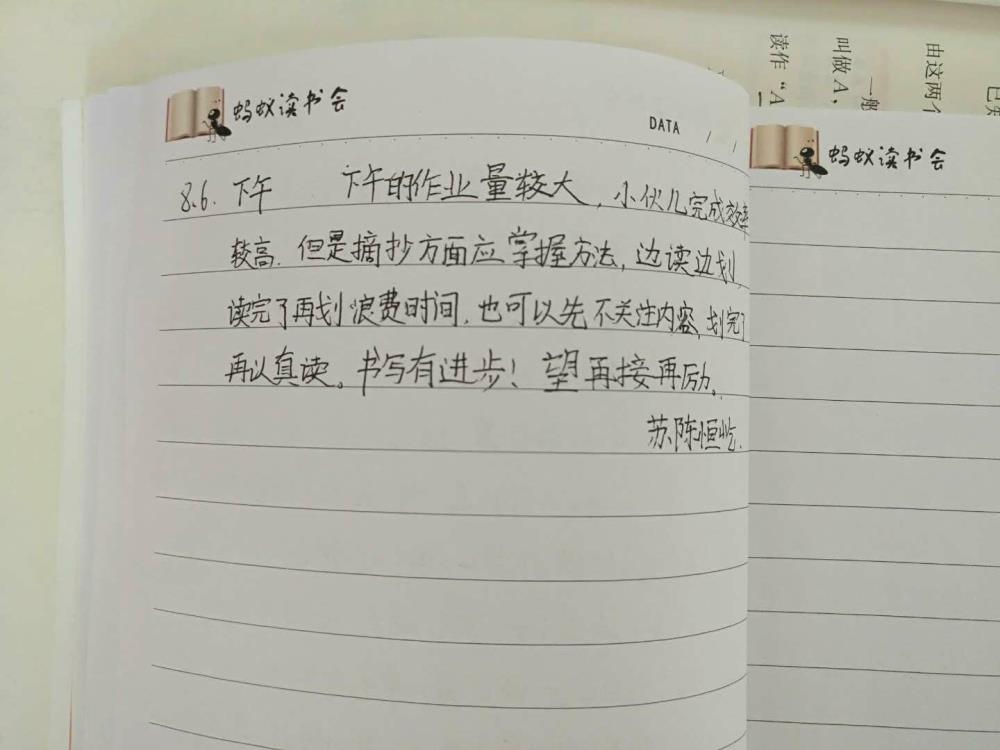 蚂蚁读书会
DATA / /
8.6. 下午 下午的作业量较大，小伙儿完成效率
较高. 但是摘抄方面应掌握方法，边读边划，
读完了再划浪费时间，也可以先不关注内容，划完了
再认真读。书写有进步！望再接再励。
苏陈恒屹.
蚂蚁读书会
读作“A
叫做 A，
一般
由这两个
已知